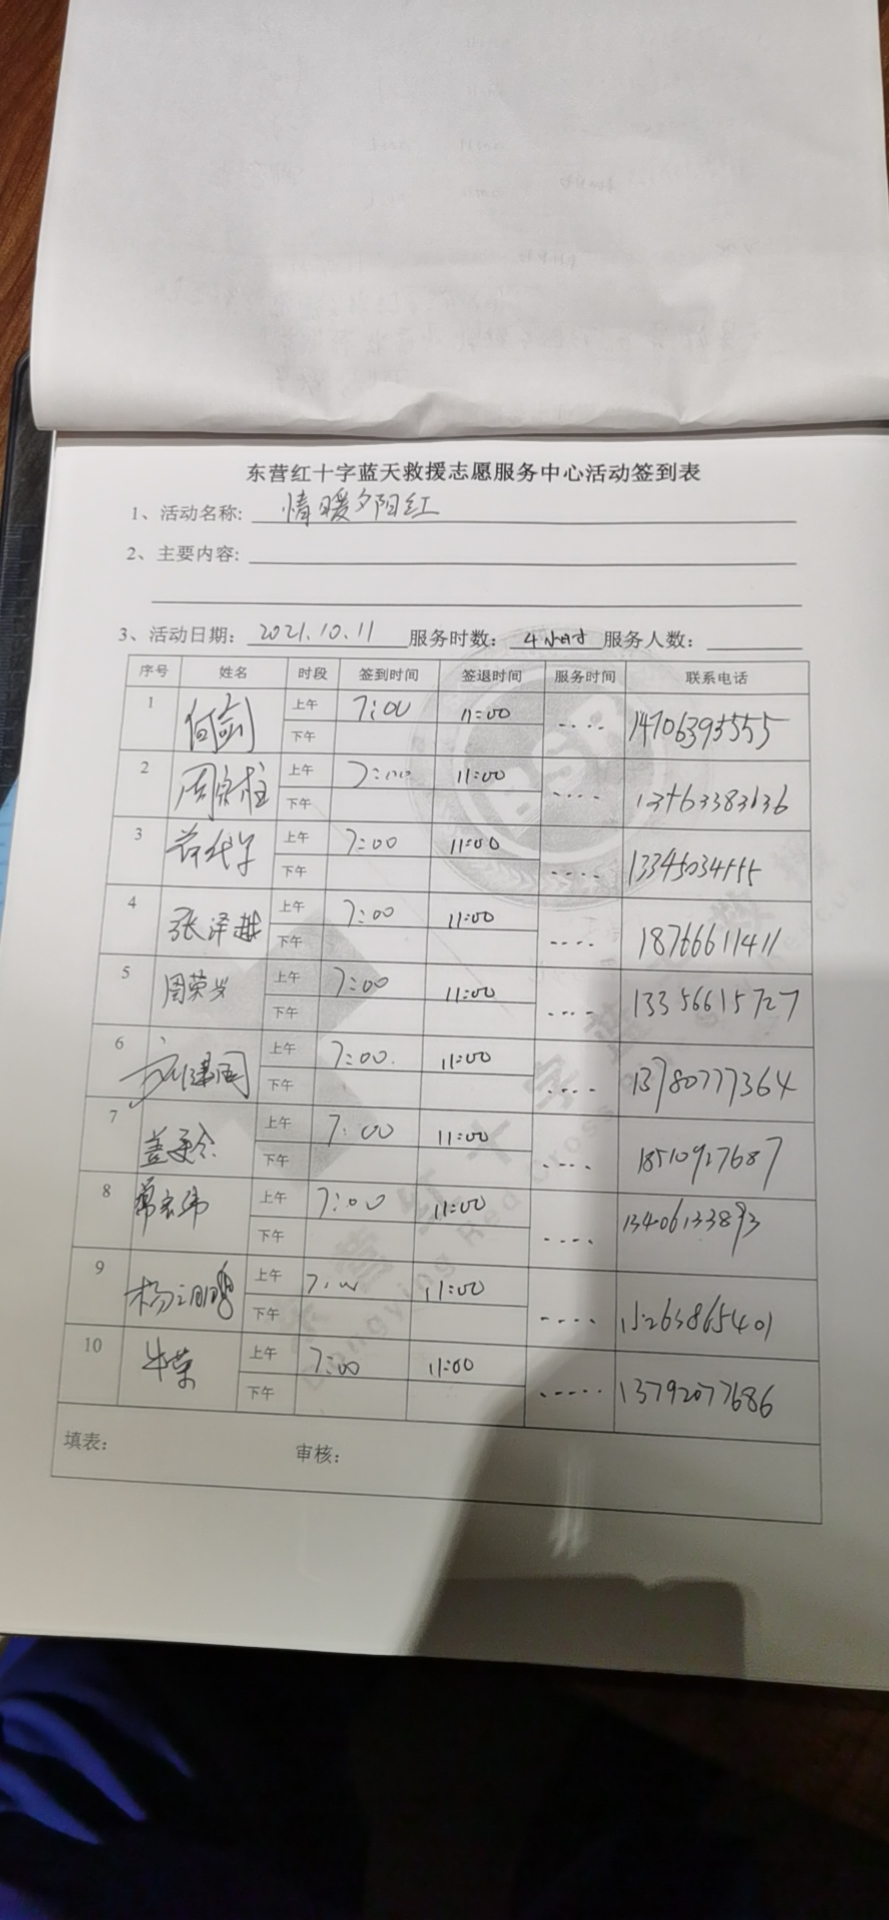 东营红十字蓝天救援志愿服务中心活动签到表
1、活动名称: 情暖夕阳红
2、主要内容:
3、活动日期: 2021.10.11 服务时数: 4小时 服务人数:
序号 姓名 时段 签到时间 签退时间 服务时间 联系电话
1 何剑 上午 7:00 11:00 14706395555
下午
2 周宗柱 上午 7:00 11:00 13463383636
下午
3 上午 7:00 11:00
下午
4 张泽越 上午 7:00 11:00 18766611411
下午
5 周荣岁 上午 7:00 11:00 13356615727
下午
6 刘建国 上午 7:00 11:00 13780777364
下午
7 盖 上午 7:00 11:00 18510927687
下午
8 上午 7:00 11:00 13406133893
下午
9 杨 上午 7:00 11:00 15263865401
下午
10 牛荣 上午 7:00 11:00 13792077686
下午
填表: 审核: